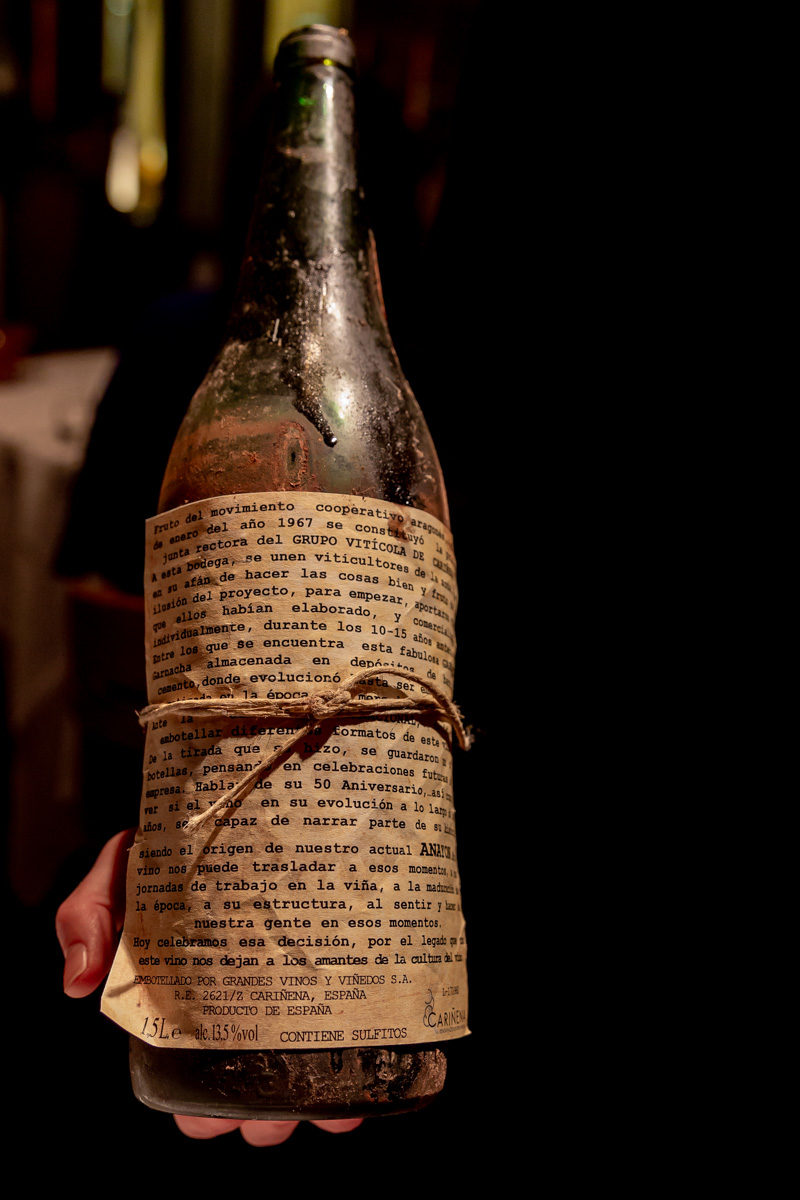 Fruto del movimiento cooperativo
de enero del año 1967 se constituyó
junta rectora del GRUPO VITÍCOLA DE
A esta bodega, se unen viticultores de la
en su afán de hacer las cosas bien y
ilusión del proyecto, para empezar,
que ellos habían elaborado, y
individualmente, durante los 10-15 años
Entre los que se encuentra esta fabulosa
Garnacha almacenada en depósitos de
cemento, donde evolucionó hasta ser
en la época
lote la
embotellar formatos de este
De la tirada que se hizo, se guardaron
botellas, pensando en celebraciones
empresa. de su 50 Aniversario, así
ver si el vino en su evolución a lo
años, capaz de narrar parte de su
siendo el origen de nuestro actual
vino nos puede trasladar a esos momentos
jornadas de trabajo en la viña, a la
la época, a su estructura, al sentir y
nuestra gente en esos momentos.
Hoy celebramos esa decisión, por el legado que
este vino nos dejan a los amantes de la cultura del
EMBOTELLADO POR GRANDES VINOS Y VIÑEDOS S.A.
R.E. 2621/Z CARIÑENA, ESPAÑA
PRODUCTO DE ESPAÑA
1,5L e alc.13,5%vol CONTIENE SULFITOS
CARIÑENA